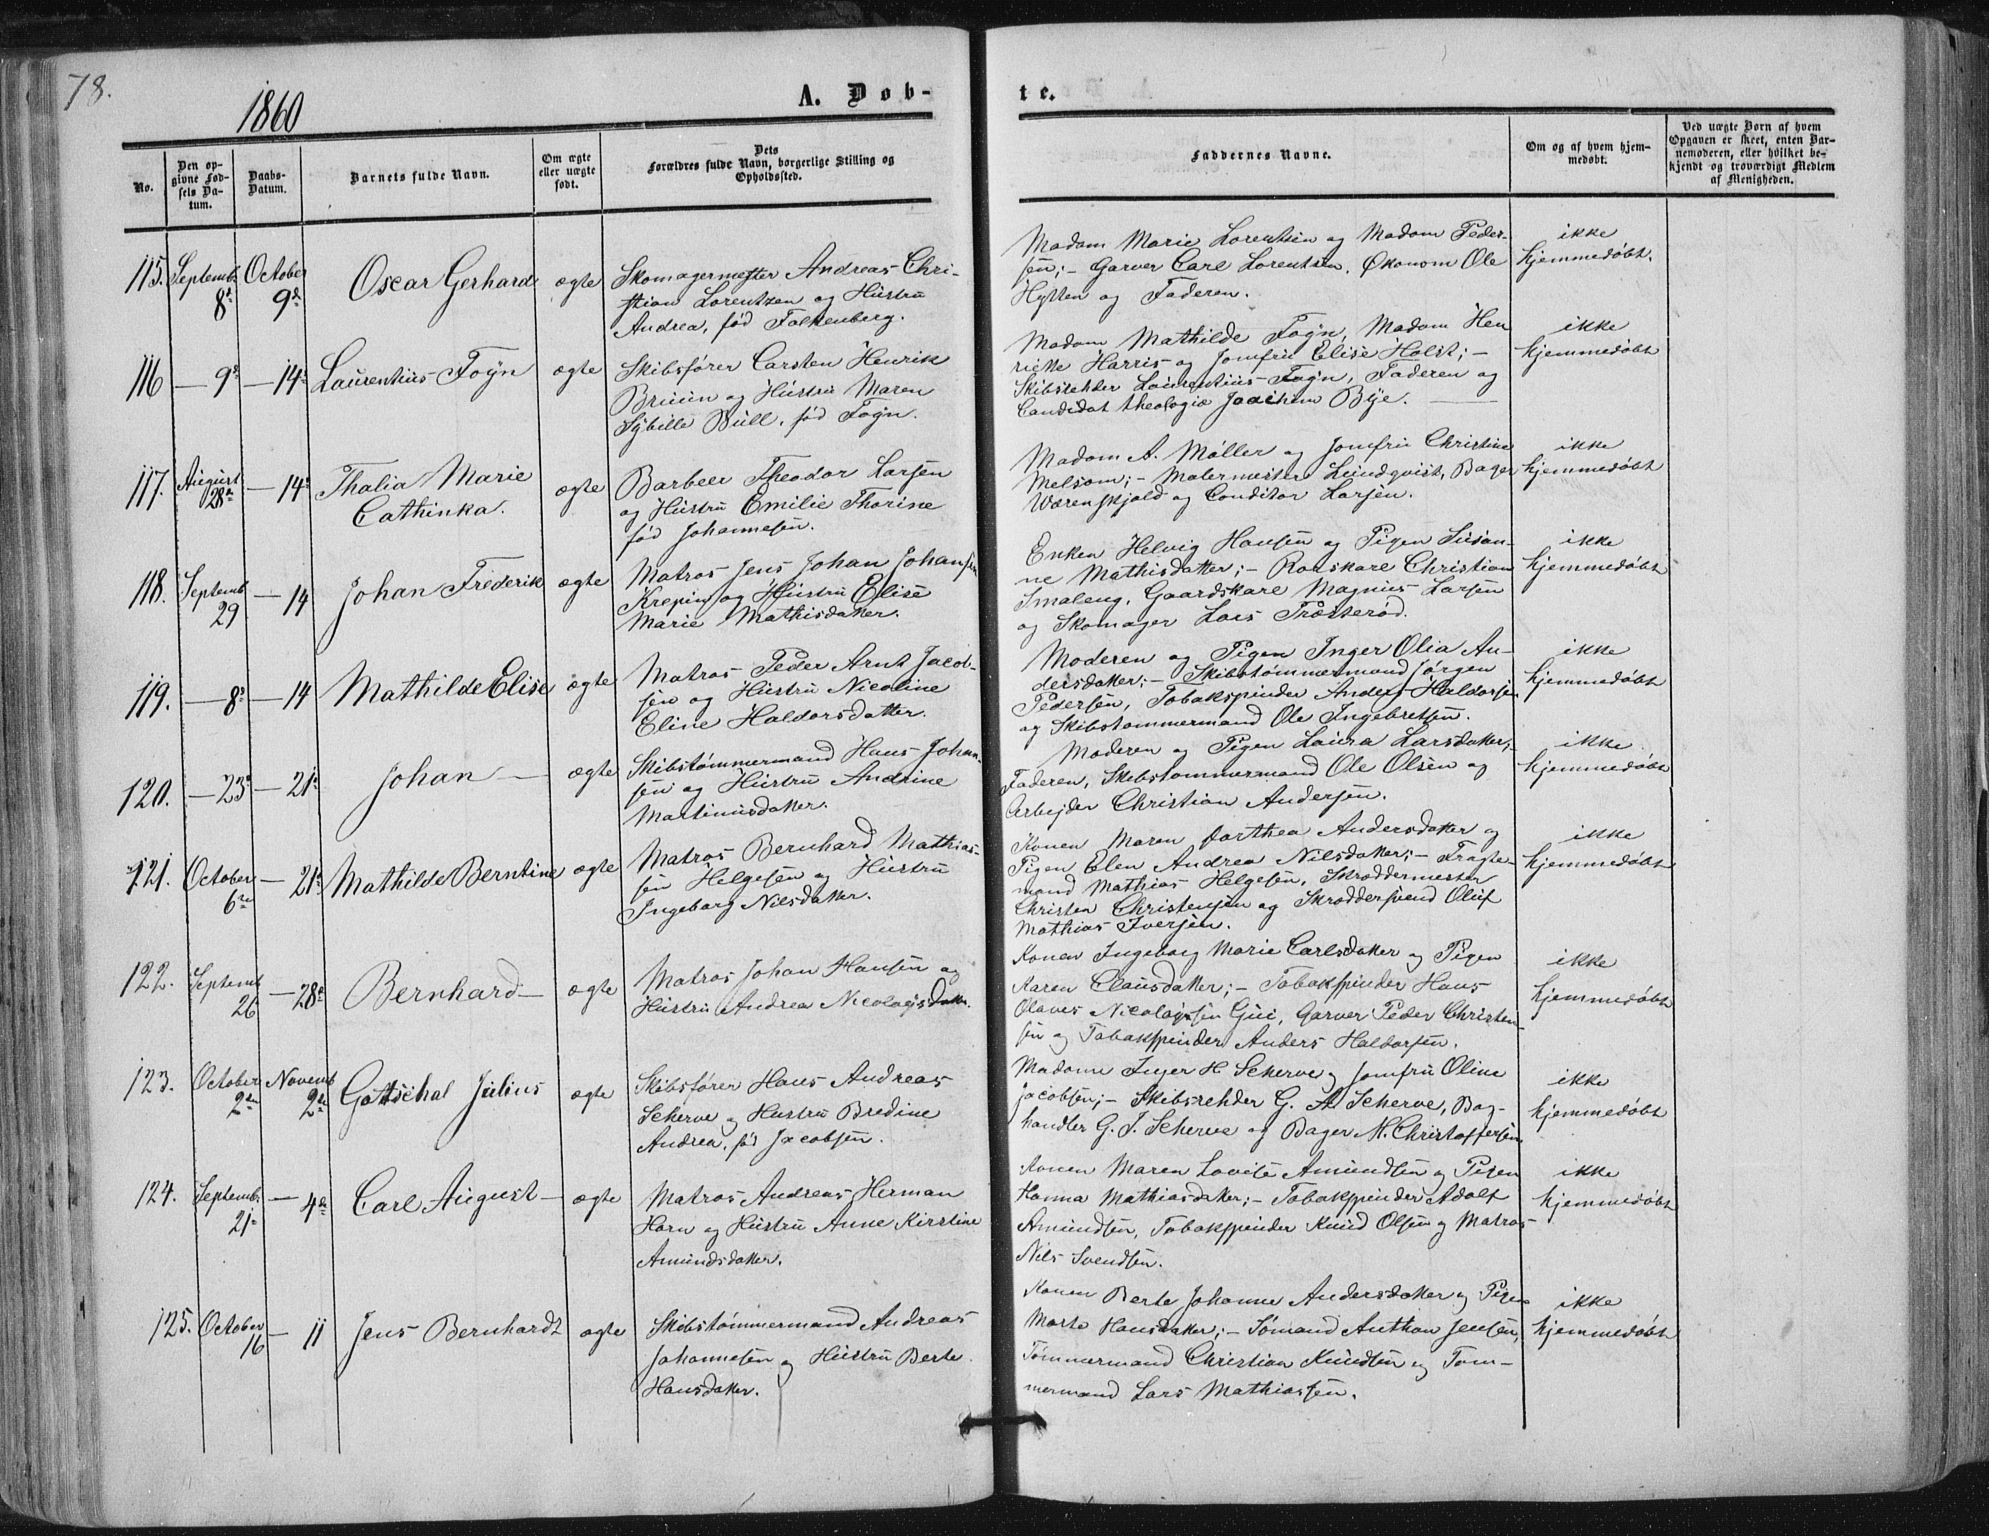 78.
1860
A. Døb-
te.
No.
Den op-
givne Fød-
sels Da-
tum.
Daabs-
Datum.
Barnets fulde Navn.
Om ægte
eller uægte
født.
Dets
Forældres fulde Navn, borgerlige Stilling og
Opholdssted.
Faddernes Navne.
Om og af hvem hjem-
medøbt.
Ved uægte Børn af hvem
Opgaven er skeet, enten Bar-
nemoderen, eller hvilket be-
kjendt og troværdigt Medlem
af Menigheden.
115. Septemb. 8de October 9de Oscar Gerhard ægte
Skomagermester Andreas Chri-
stian Lorentzen og Hustru
Andrea, fød Falkenberg.
Madam Marie Lorentsen og Madam Peder-
sen; - Garver Carl Lorentsen, Økonom Ole
Hytten og Faderen.
ikke
hjemmedøbt.
116 — 9de — 14de Laurentius Foÿn ægte
Skibsfører Carsten Henrik
Bruun og Hustru Maren
Sybille Bull, fød Foÿn.
Madam Mathilde Foÿn, Madam Hen
riette Harris og Jomfru Elise Holst; -
Skibsrehder Laurentius Foÿn, Faderen og
Candidat theologiæ Joachim Bÿe. —
ikke
hjemmedøbt
117. August 28de — 14de Thalia Marie
Cathinka. ægte
Barbeer Theodor Larsen
og Hustru Emilie Thorine
fød Johannesen.
Madam A. Møller og Jomfru Christine
Melsom; - Malermester Lundqvist, Bager
Wærenskjold og Conditor Larsen.
ikke
hjemmedøbt
118. Septemb. 29 — 14 Johan Frederik ægte
Matros Jens Johan Johansen
Krepin og Hustru Elise
Marie Mathisdatter.
Enken Helvig Hansen og Pigen Susan-
ne Mathisdatter; - Rorskarl Christian
Smaleng, Gaardskarl Magnus Larsen
og Skomager Lars Trøsterød.
ikke
hjemmedøbt
119. — 8de — 14 Mathilde Elise ægte
Matros Peder Arnt Jacob-
sen og Hustru Nicoline
Eline Haldorsdatter.
Moderen og Pigen Inger Olia An-
dersdatter; - Skibstømmermand Jørgen
Pedersen, Tobakspinder Anders Haldorsen
og Skibstømmermand Ole Ingebretsen.
ikke
hjemmedøbt
120. — 23de — 21de Johan — ægte
Skibstømmermand Hans Johan-
sen og Hustru Andrine
Martinusdatter.
Moderen og Pigen Laura Larsdatter; -
Faderen, Skibstømmermand Ole Olsen og
Arbejder Christian Andersen.
ikke
hjemmedøbt
121. October 6te — 21de Mathilde Berntine ægte
Matros Bernhard Mathias-
sen Helgesen og Hustru
Ingeborg Nilsdatter.
Konen Maren Dorthea Andersdatter og
Pigen Elen Andrea Nilsdatter; - Fragte-
mand Mathias Helgesen, Skræddermester
Christen Christensen og Skræddersvend Oluf
Mathias Iversen.
ikke
hjemmedøbt
122. Septemb. 26 — 28de Bernhard — ægte
Matros Johan Hansen og
Hustru Andrea Nicolaysdatter.
Konen Ingeborg Marie Carlsdatter og Pigen
Karen Clausdatter; - Tobakspinder Hans
Olaves Nicolaysen Gui, Garver Peder Christen-
sen og Tobakspinder Anders Haldorsen.
ikke
hjemmedøbt
123. October 2den Novemb. 2de Gottschal Julius ægte
Skibsfører Hans Andreas
Scherve og Hustru Bredine
Andrea, fød Jacobsen.
Madame Inger H Scherve og Jomfru Oline
Jacobsen; - Skibsrehder G. A. Scherve, Bog-
handler G. J. Scherve og Bager N. Christoffersen
ikke
hjemmedøbt
124. Septemb. 21de — 4de Carl August — ægte
Matros Andreas Herman
Horn og Hustru Anne Kirstine
Amundsdatter.
Konen Maren Lovise Amundsen og Pigen
Hanna Mathiasdatter; - Tobakspinder Adolf
Amundsen, Tobakspinder Knud Olsen og Matros
Nils Svendsen.
ikke
hjemmedøbt
125. October 16 — 11 Jens Bernhardt ægte
Skibstømmermand Andreas
Johannesen og Hustru Berte
Hansdatter.
Konen Berte Johanne Andersdatter og Pigen
Marte Hansdatter; - Sømand Anthon Jensen,
Tømmermand Christian Knudsen og Tøm-
mermand Lars Mathiassen.
ikke
hjemmedøbt